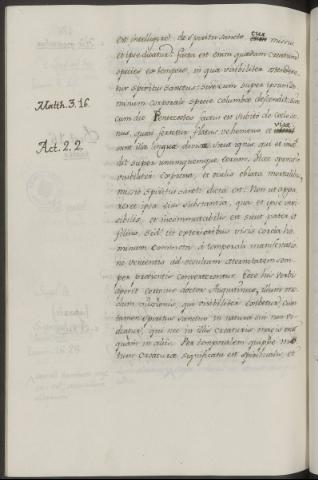 est intelligere de Spiritu sancto cur missus
et ipse dicatur. facta est enim quaedam creaturae
species ex tempore, in qua visibiliter ostendere-
tur spiritus sanctus: sive cum super ipsum do-
Matth. 3. 16. minum corporali specie columbae descendit, sive
cum die Pentecostes factus est subito de caelo so-
nus, quasi ferretur flatus vehemens et visae
Act. 2. 2. sunt illis linguae divisae sicut ignis, qui et inse-
dit super unumquemque eorum. Haec operatio
visibiliter expressa, et oculis oblata mortalibus,
missio Spiritus sancti dicta est: Non ut appa-
reret ipsa eius substantia, qua et ipse invi-
sibilis, et incommutabilis est sicut pater et
filius, sed ut exterioribus visis corda ho-
minum commota, à temporali manifestatio-
ne venientis ad occultam aeternitatem sem-
per praesentis converterentur.
doctor Augustinus, illum mo-
visibiliter
tamen Spiritus sanctus in natura sui non vi-
deatur, qui nec in illis creaturis magis erat
quàm in aliis. Per temporalem quippe mo-
tum creaturae significata est spiritualis, et